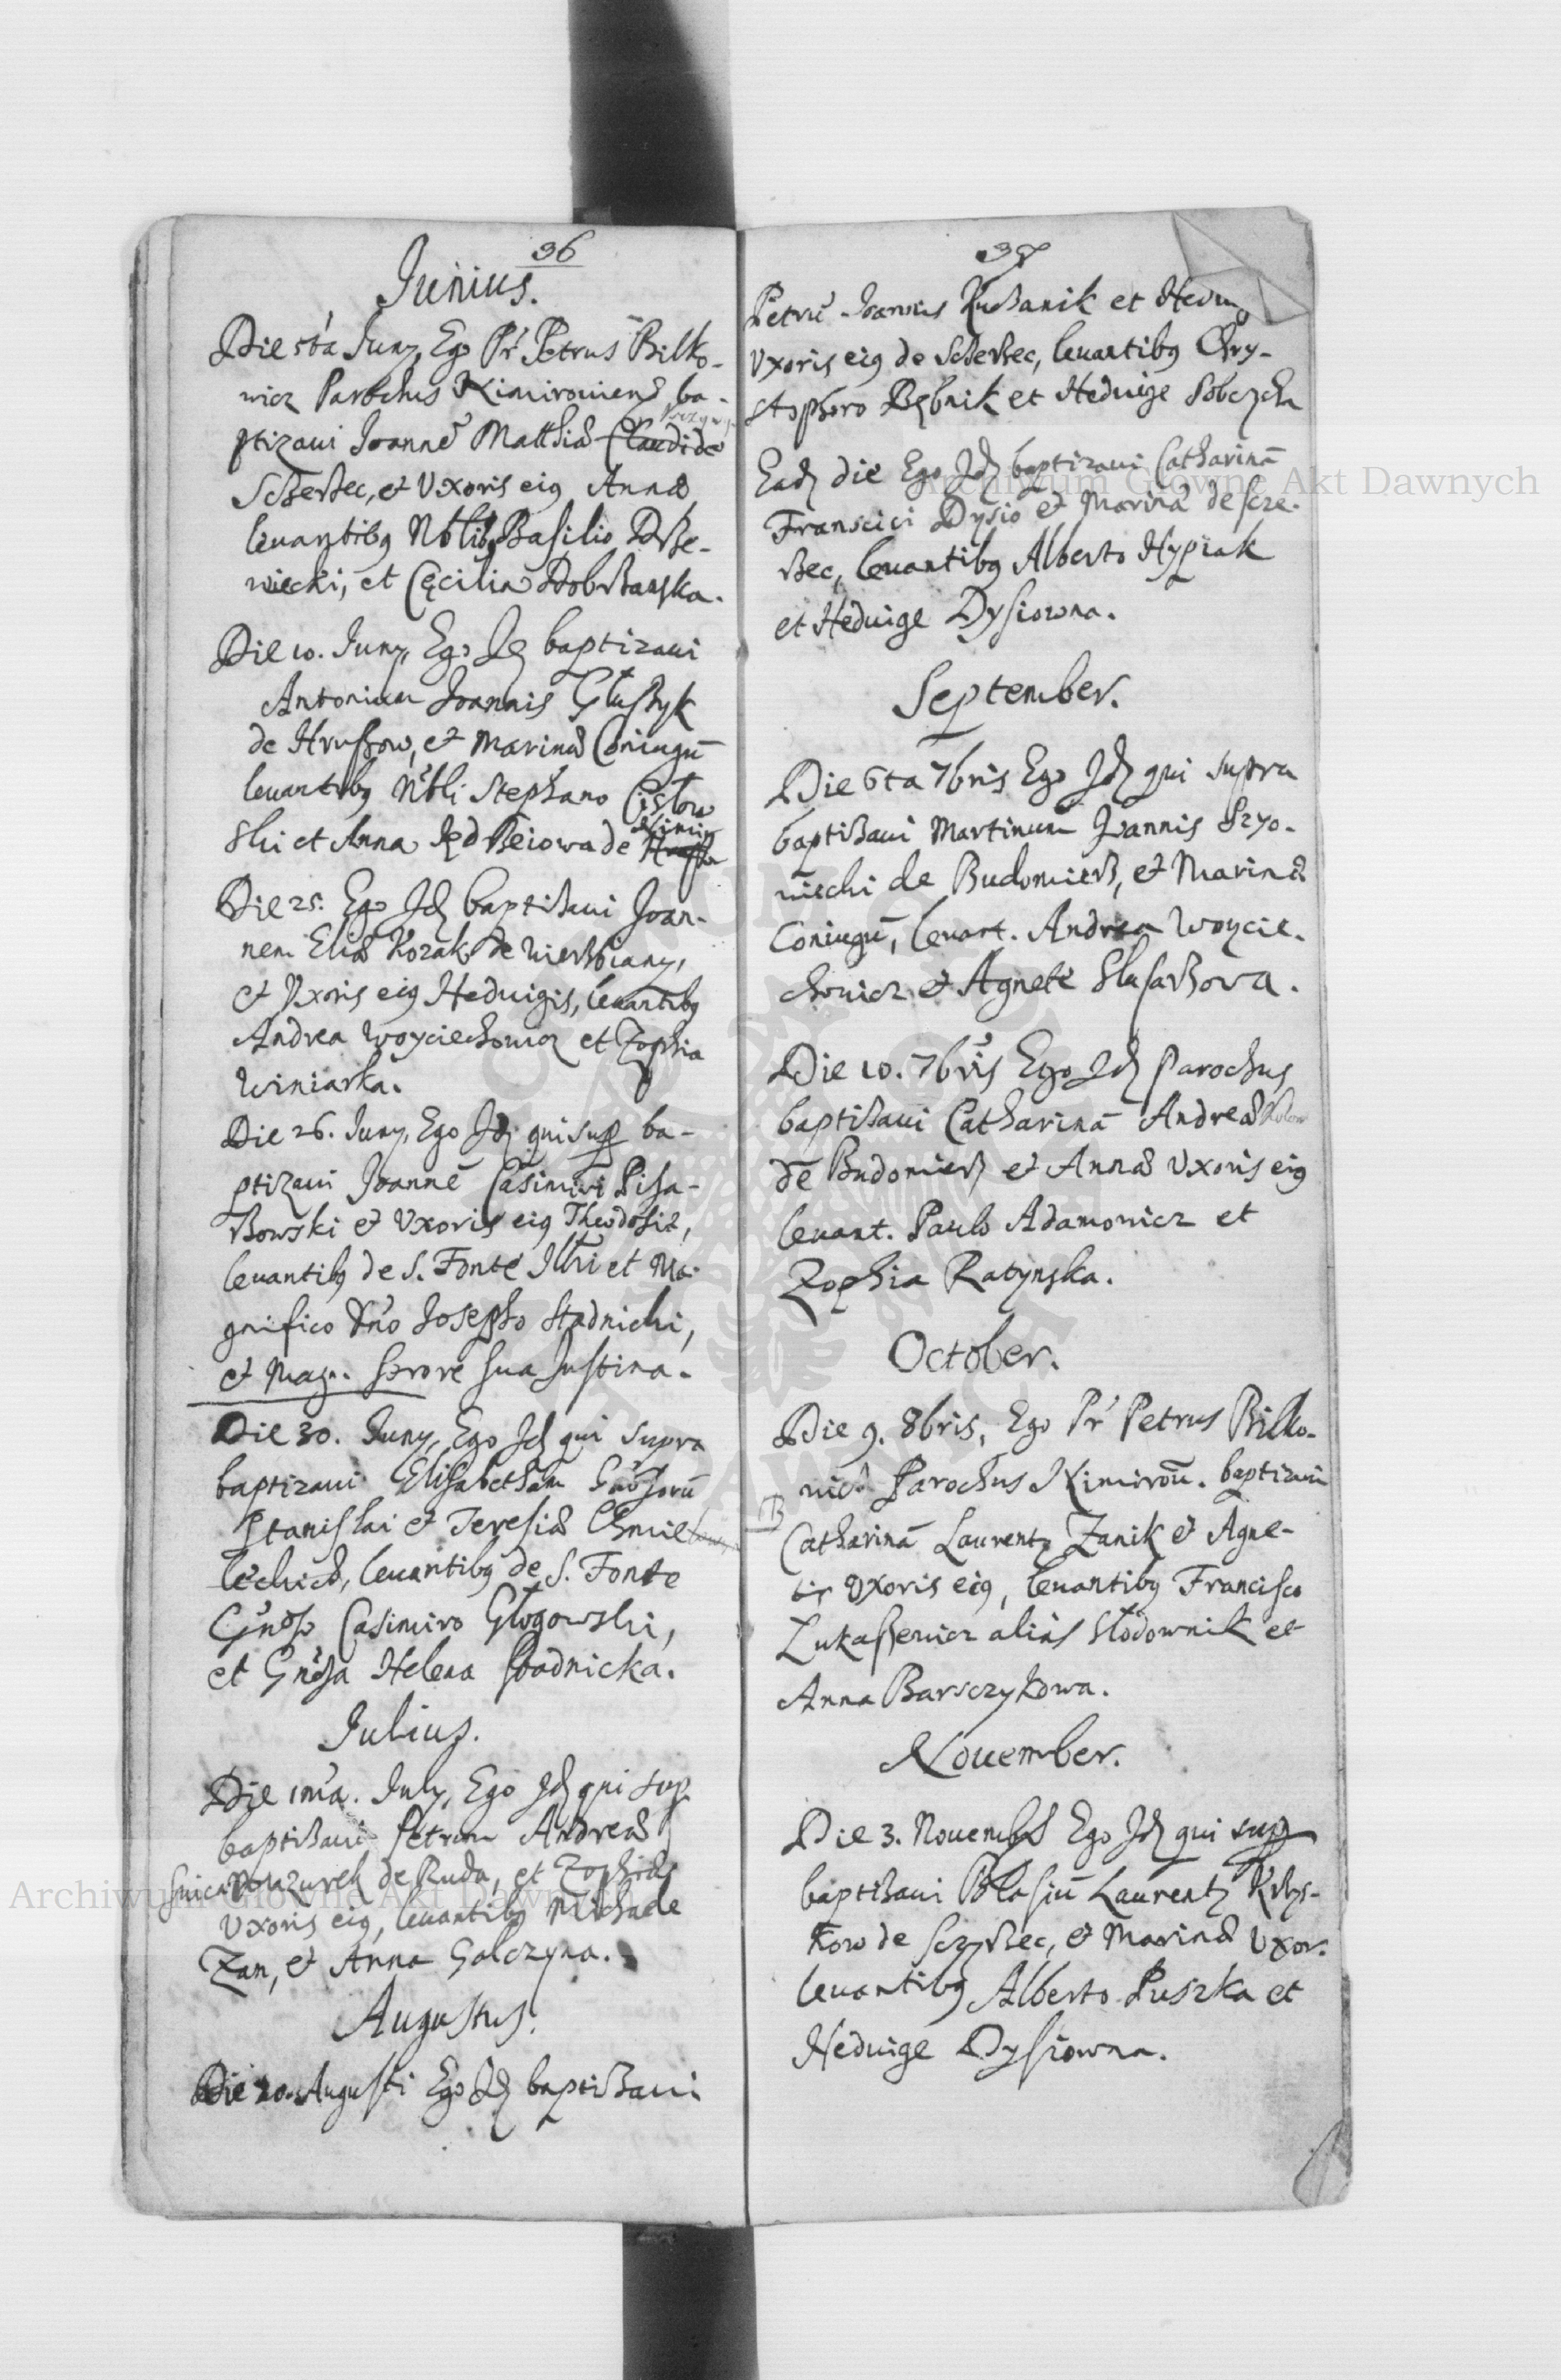 36
Junius.
Die 5ta Juny, Ego Pr Petrus Bilko-
wicz Parochus Niemirouiens ba-
ptizaui Joannē Matthiæ Claudi de
Scherbec, et Vxoris eiq Annæ
leuantibq Nblibq Basilio
wiecki, et Cęcilia Dobrßanska.
Die 10. Juny, Ego Jd baptizaui
Antonium Joannis Głußyk
de Hrußow, et Marinæ Coniugū
leuantibq Nbli Stephano Cistow
ski et Anna de
Die 25. Ego Jd baptißaui Joan-
nem Eliæ Kozak de Wierßbiany,
et Vxoris eiq Heduigis, leuantibq
Andrea Woyciechowicz et Zophia
Winiarka.
Die 26. Juny, Ego Jd qui sup ba-
ptizaui Joannē Casimiri Pisa-
ßowski et Vxoris eiq Theodosiæ,
leuantibq de S. Fonte Illri et Ma-
gnifico Dno Josepho Stadnicki,
et Magn. Sorore sua Justina.
Die 30. Juny, Ego Jd qui supra
baptizaui Elisabetham Gnosorū
Stanislai et Teresiæ Chmie
leckich, leuantibq de S. Fonte
Gnoso Casimiro Głogowski,
et Gnosa Helena Stadnicka.
Julius.
Die 1ma. July, Ego Jd qui sup
baptißaui Petrum Andreæ
Mazurek de Ruda, et Zophiæ
Vxoris eiq, leuantibq Michaele
Zan, et Anna Galczyna.
Augustus.
Die 20. Augusti Ego Jd baptißaui
37
Petrū Joannis Kußanik et Heduig
Vxoris eiq de Scherßec, leuantibq Chry-
stophoro Rębnik et Heduige
Ead die Ego Jd baptizaui Catharinā
Franscici Dysio et Marinæ de Scze-
rßec, leuantibq Alberto Hypiak
et Heduige Dysiowna.
September.
Die 6ta 7bris Ego Jd qui supra
baptißaui Martinum Joannis
niecki de Budomierß, et Marinæ
Coniugū, leuant. Andrea Woycie-
chowicz et Agnete Slusarßowa.
Die 10. 7bris Ego Jd Parochus
baptißaui Catharinā Andreæ
de Budomierß et Annæ Vxoris eiq
leuant. Paulo Adamowicz et
Zophia Ratynska.
October.
Die 9. 8bris, Ego Pr Petrus Bilko-
wicz Parochus Niemirou. baptizaui
Catharinā Laurenty Zanik et Agne-
tis Vxoris eiq, leuantibq Francisco
Lukaßewicz aliàs Słodownik et
Anna Barsczykowa.
Nouember.
Die 3. Nouembris Ego Jd qui sup
baptißaui Blasiū Laurenty Krys-
kow de Sczyrßec, et Marinæ Vxor.
leuantibq Alberto Puszka et
Heduige Dysiowna.
Archiwum Główne Akt Dawnych
Archiwum Główne Akt Dawnych